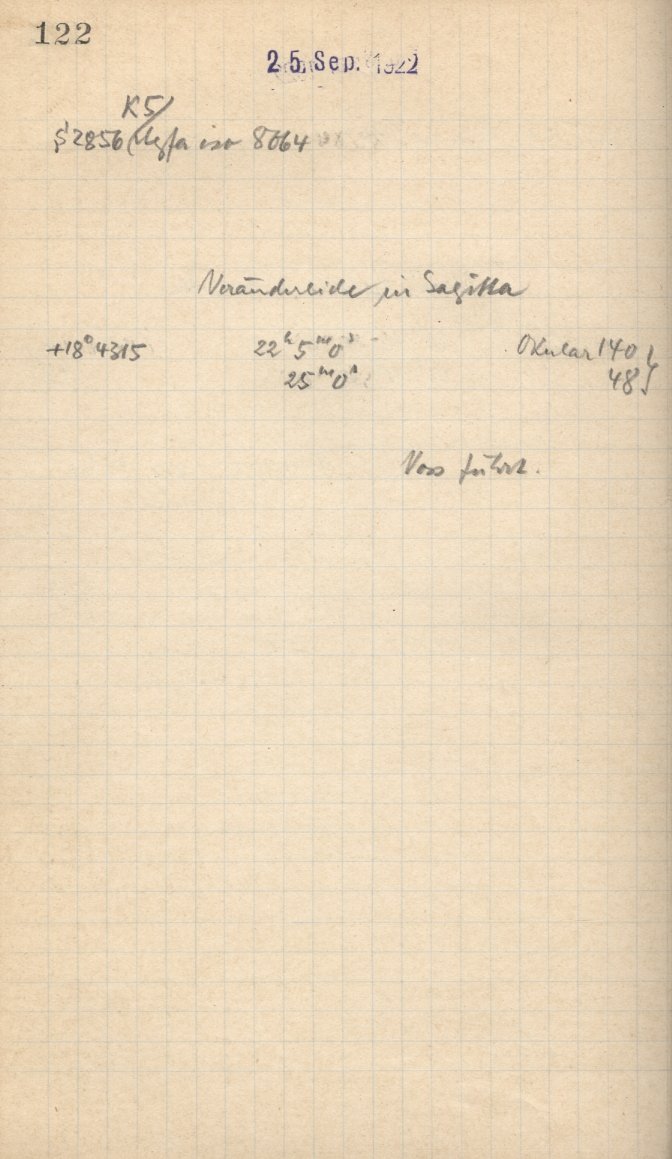 122
25. Sep. 1922
K5
S 2856 (Agfa iso 8664
Veränderliche in Sagitta
+18° 4315 22ʰ 5ᵐ 0ˢ Okular 140
25ᵐ 0ˢ 48
Voss führt.